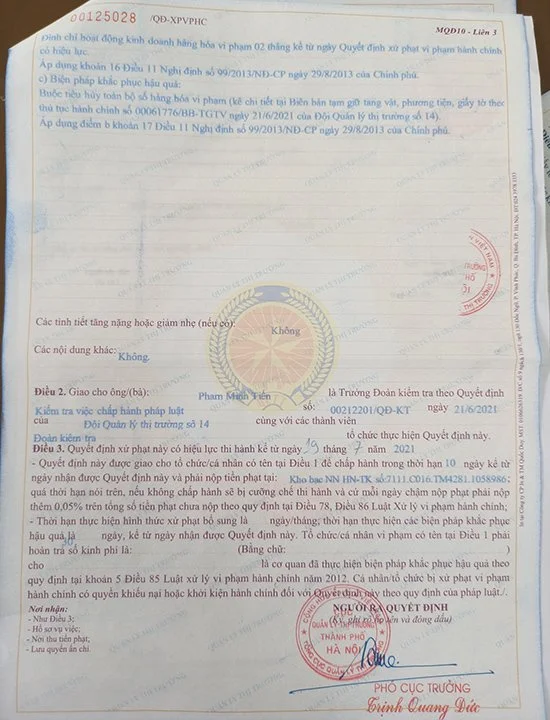 00125028 /QĐ-XPVPHC
MQĐ10 - Liên 3
Đình chỉ hoạt động kinh doanh hàng hóa vi phạm 02 tháng kể từ ngày Quyết định xử phạt vi phạm hành chính
có hiệu lực.
Áp dụng khoản 16 Điều 11 Nghị định số 99/2013/NĐ-CP ngày 29/8/2013 của Chính phủ.
c) Biện pháp khắc phục hậu quả:
Buộc tiêu hủy toàn bộ số hàng hóa vi phạm (kê chi tiết tại Biên bản tạm giữ tang vật, phương tiện, giấy tờ theo
thủ tục hành chính số 00061776/BB-TGTV ngày 21/6/2021 của Đội Quản lý thị trường số 14).
Áp dụng điểm b khoản 17 Điều 11 Nghị định số 99/2013/NĐ-CP ngày 29/8/2013 của Chính phủ.
Các tình tiết tăng nặng hoặc giảm nhẹ (nếu có):
Không
Các nội dung khác:
Không.
Điều 2. Giao cho ông/(bà): Phạm Minh Tiến là Trưởng Đoàn kiểm tra theo Quyết định
Kiểm tra việc chấp hành pháp luật số: 00212201/QĐ-KT ngày 21/6/2021
của Đội Quản lý thị trường số 14 cùng với các thành viên
Đoàn kiểm tra tổ chức thực hiện Quyết định này.
Điều 3. Quyết định xử phạt này có hiệu lực thi hành kể từ ngày 19 tháng 7 năm 2021
- Quyết định này được giao cho tổ chức/cá nhân có tên tại Điều 1 để chấp hành trong thời hạn 10 ngày kể từ
ngày nhận được Quyết định này và phải nộp tiền phạt tại: Kho bạc NN HN-TK số:7111.C016.TM4281.1058986;
quá thời hạn nói trên, nếu không chấp hành sẽ bị cưỡng chế thi hành và cứ mỗi ngày chậm nộp phạt phải nộp
thêm 0,05% trên tổng số tiền phạt chưa nộp theo quy định tại Điều 78, Điều 86 Luật Xử lý vi phạm hành chính;
- Thời hạn thực hiện hình thức xử phạt bổ sung là ngày/tháng; thời hạn thực hiện các biện pháp khắc phục
hậu quả là 30 ngày, kể từ ngày nhận được Quyết định này. Tổ chức/cá nhân vi phạm có tên tại Điều 1 phải
hoàn trả số kinh phí là: (Bằng chữ: )
cho là cơ quan đã thực hiện biện pháp khắc phục hậu quả theo
quy định tại khoản 5 Điều 85 Luật xử lý vi phạm hành chính năm 2012. Cá nhân/tổ chức bị xử phạt vi phạm
hành chính có quyền khiếu nại hoặc khởi kiện hành chính đối với Quyết định này theo quy định của pháp luật./.
Nơi nhận:
- Như Điều 3;
- Hồ sơ vụ việc;
- Nơi thu tiền phạt;
- Lưu quyển ấn chỉ.
NGƯỜI RA QUYẾT ĐỊNH
(Ký, ghi rõ họ tên và đóng dấu)
CỤC
QUẢN LÝ THỊ TRƯỜNG
THÀNH PHỐ
HÀ NỘI
TỔNG CỤC QUẢN LÝ THỊ TRƯỜNG
PHÓ CỤC TRƯỞNG
Trịnh Quang Đức